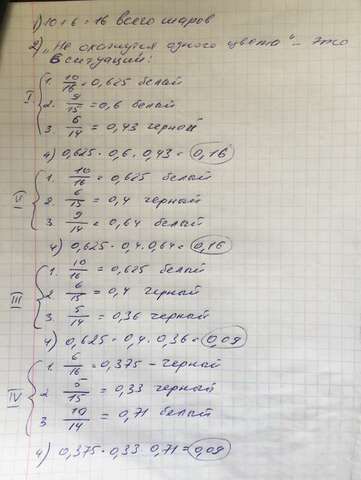 1) 10 + 6 = 16 всего шаров
2) "Не окажутся одного цвета" - это
в ситуации:
I
1. 10/16 = 0,625 белой
2. 9/15 = 0,6 белой
3. 6/14 = 0,43 черной
4) 0,625 · 0,6 · 0,43 = 0,16
II
1. 10/16 = 0,625 белой
2. 6/15 = 0,4 черной
3. 9/14 = 0,64 белой
4) 0,625 · 0,4 · 0,64 = 0,16
III
1. 10/16 = 0,625 белой
2. 6/15 = 0,4 черной
3. 5/14 = 0,36 черной
4) 0,625 · 0,4 · 0,36 = 0,09
IV
1. 6/16 = 0,375 - черной
2 5/15 = 0,33 черной
3 10/14 = 0,71 белой
4) 0,375 · 0,33 · 0,71 = 0,09